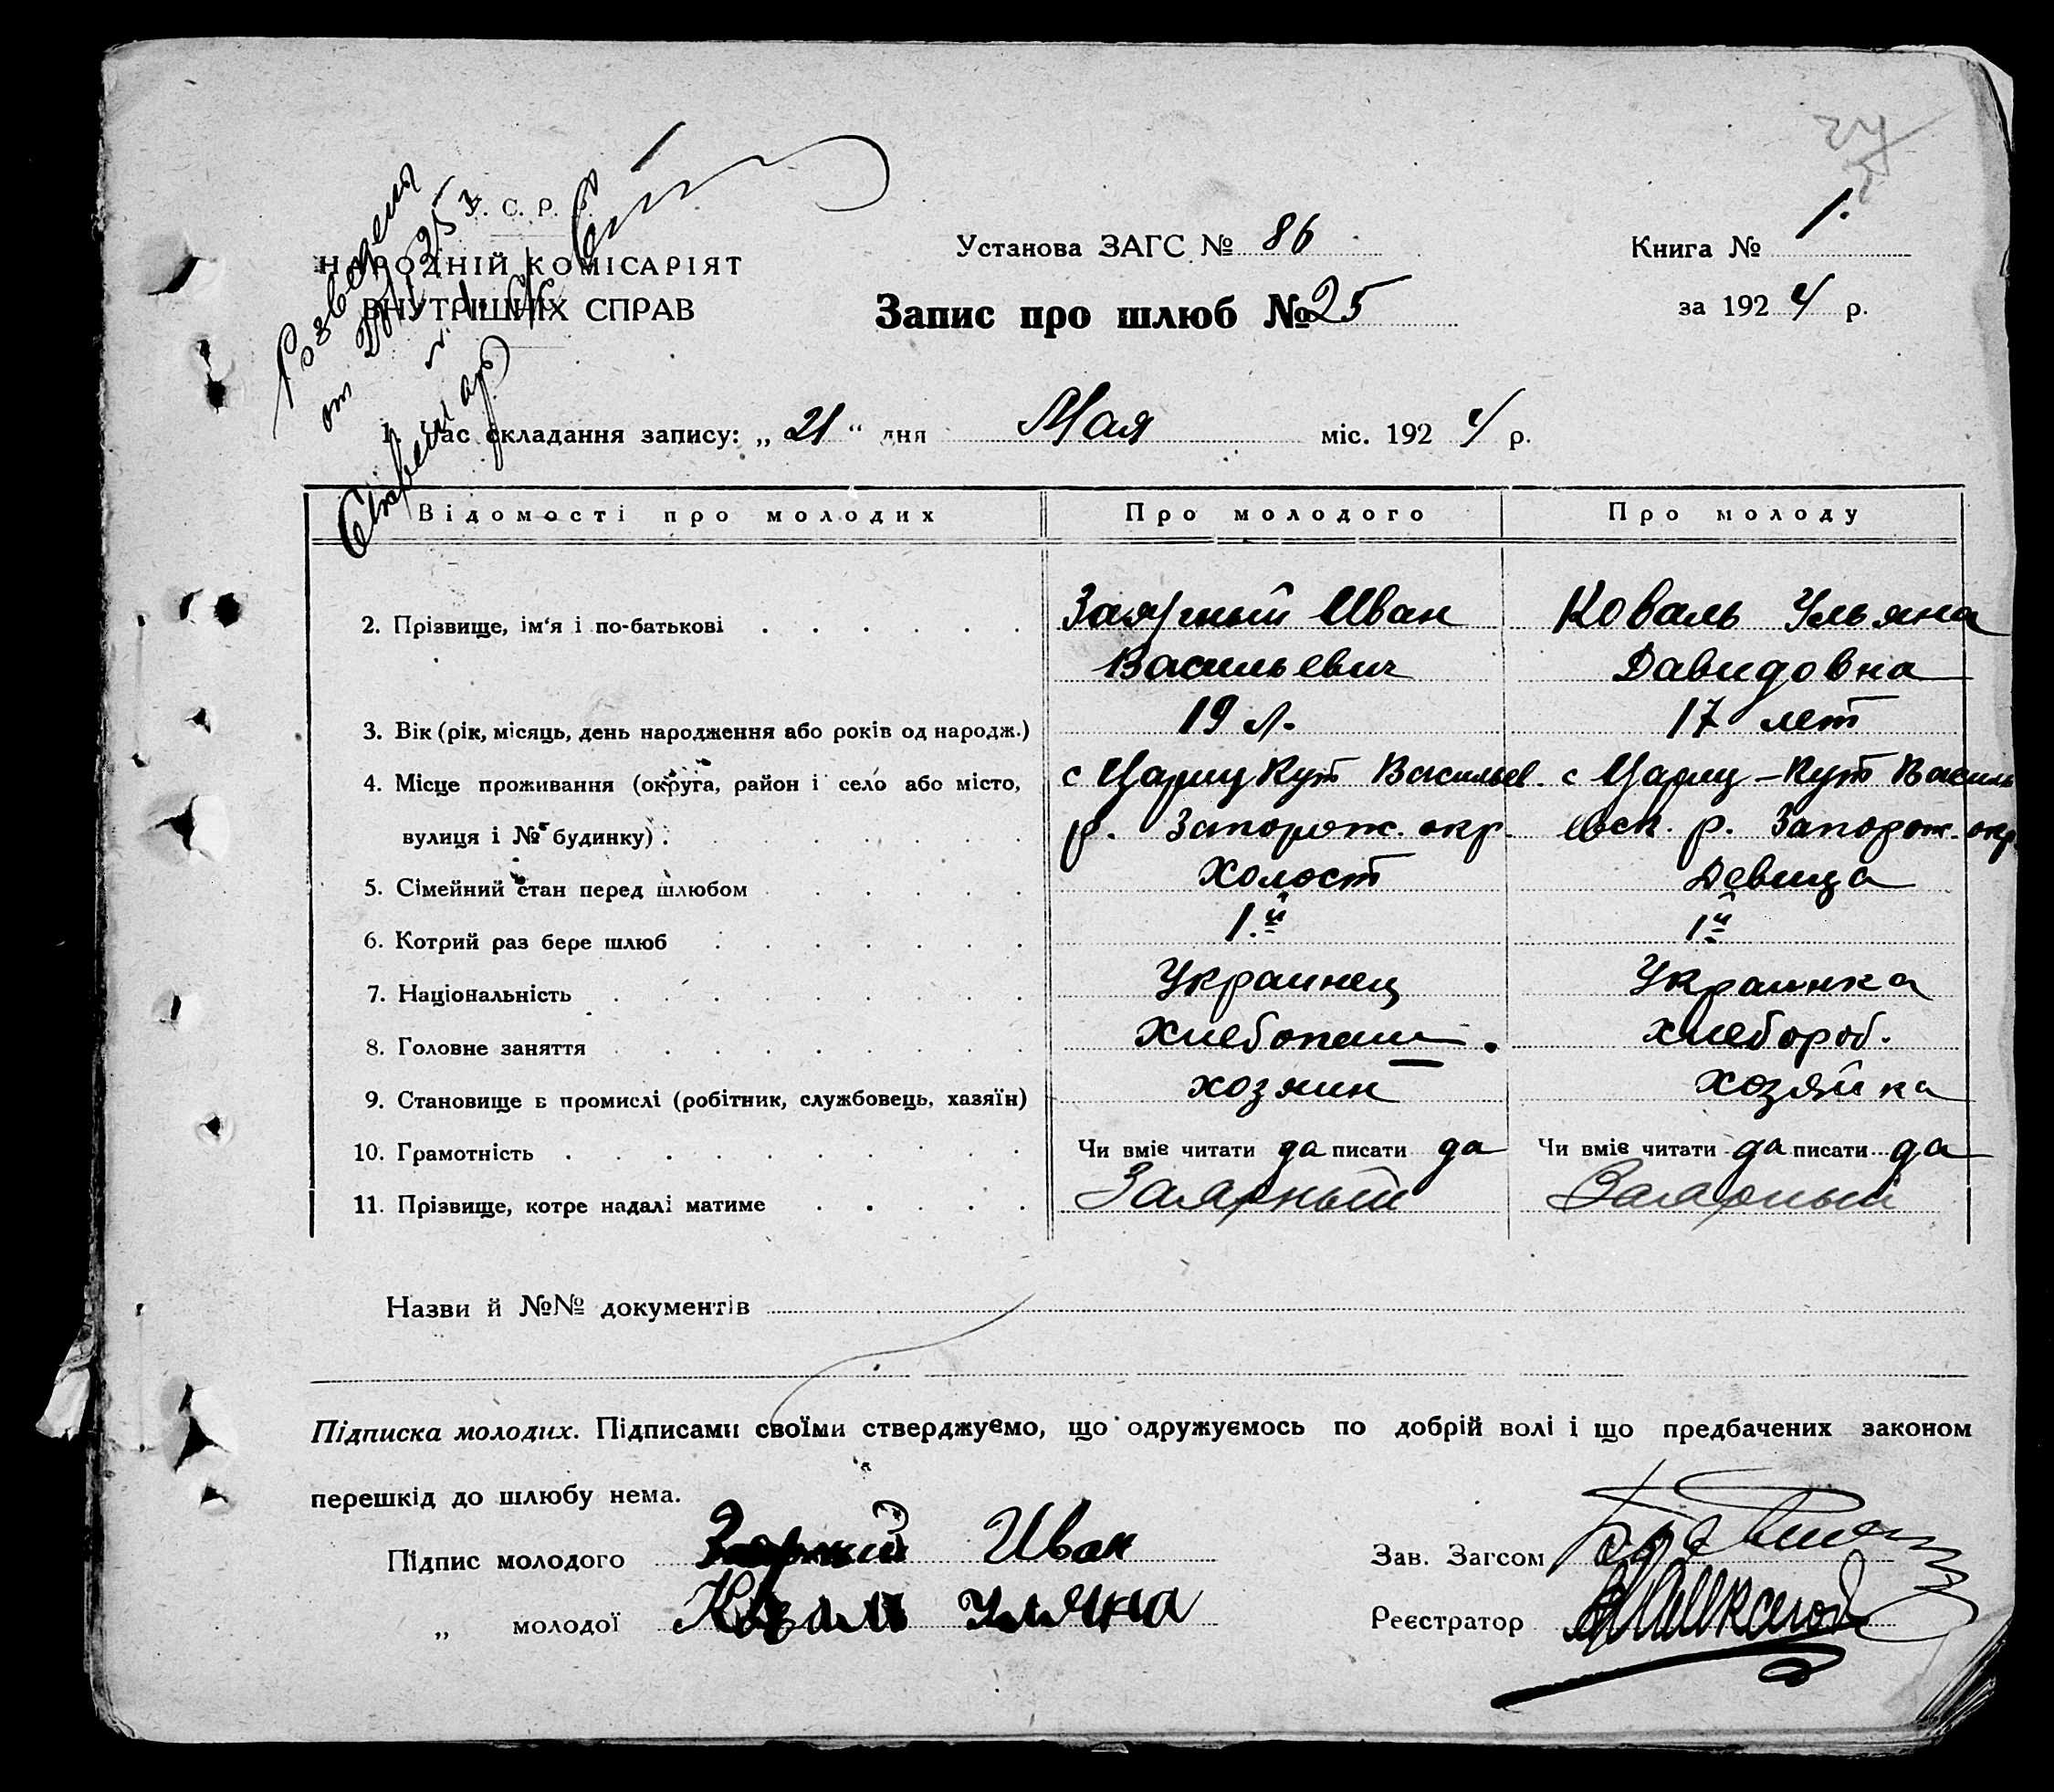 24
У. С. Р. Р.
НАРОДНІЙ КОМІСАРІЯТ
ВНУТРІШНІХ СПРАВ
Розведени
от
Секретарь
Установа ЗАГС № 86
Книга № 1.
Запис про шлюб № 25
за 1924 р.
1. Час складання запису: „ 21 “ дня Мая міс. 1924 р.
Відомості про молодих Про молодого Про молоду
2. Прізвище, ім‘я і по-батькові Заярный Иван Коваль Ульяна
Васильевич Давидовна
3. Вік (рік, місяць, день народження або років од народж.) 19 л. 17 лет
4. Місце проживання (округа, район і село або місто, с Цариц Кут Васильев. с Цариц-Кут Василь
вулиця і № будинку) р. Запорож. окр. евск. р. Запорож. окр.
5. Сімейний стан перед шлюбом Холост Девица
6. Котрий раз бере шлюб 1.й 1й
7. Національність Украинец Украинка
8. Головне заняття Хлебопаш. хлебороб.
9. Становище в промислі (робітник, службовець, хазяїн) хозяин хозяйка
10. Грамотність Чи вміє читати да писати да Чи вміє читати да писати да
11. Прізвище, котре надалі матиме Заярный Заярный
Назви й №№ документів
Підписка молодих. Підписами своїми стверджуємо, що одружуємось по добрій волі і що предбачених законом
перешкід до шлюбу нема.
Підпис молодого Иван Зав. Загсом
„ молодої Коваль Уляна Реєстратор